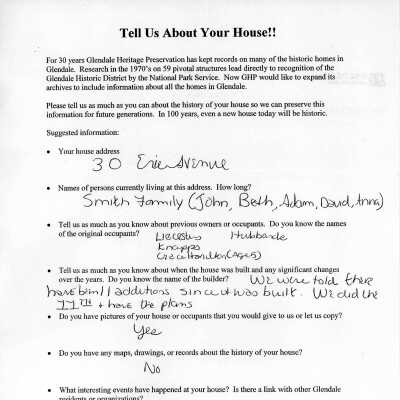 Tell Us About Your House!!
For 30 years Glendale Heritage Preservation has kept records on many of the historic homes in
Glendale. Research in the 1970's on 59 pivotal structures lead directly to recognition of the
Glendale Historic District by the National Park Service. Now GHP would like to expand its
archives to include information about all the homes in Glendale.
Please tell us as much as you can about the history of your house so we can preserve this
information for future generations. In 100 years, even a new house today will be historic.
Suggested information:
• Your house address
30 Erie Avenue
• Names of persons currently living at this address. How long?
Smith Family (John, Beth, Adam, David, Anna)
• Tell us as much as you know about previous owners or occupants. Do you know the names
of the original occupants? Hubbards
Knapps
• Tell us as much as you know about when the house was built and any significant changes
over the years. Do you know the name of the builder? We were told there
have been 11 additions since it was built. We did the
11TH + have the plans
• Do you have pictures of your house or occupants that you would give to us or let us copy?
Yes
• Do you have any maps, drawings, or records about the history of your house?
No
• What interesting events have happened at your house? Is there a link with other Glendale
residents or organizations?